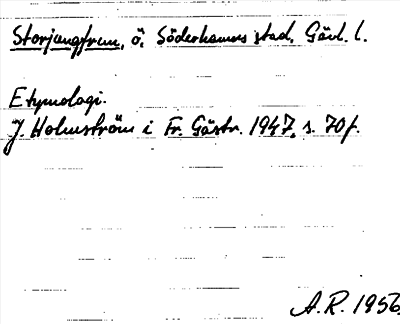 Storjungfrun, ö, Söderhamns stad, Gävl. l.
Etymologi.
J. Holmström i Fr. Gästr. 1947, s. 70 f.
A.R. 1956.